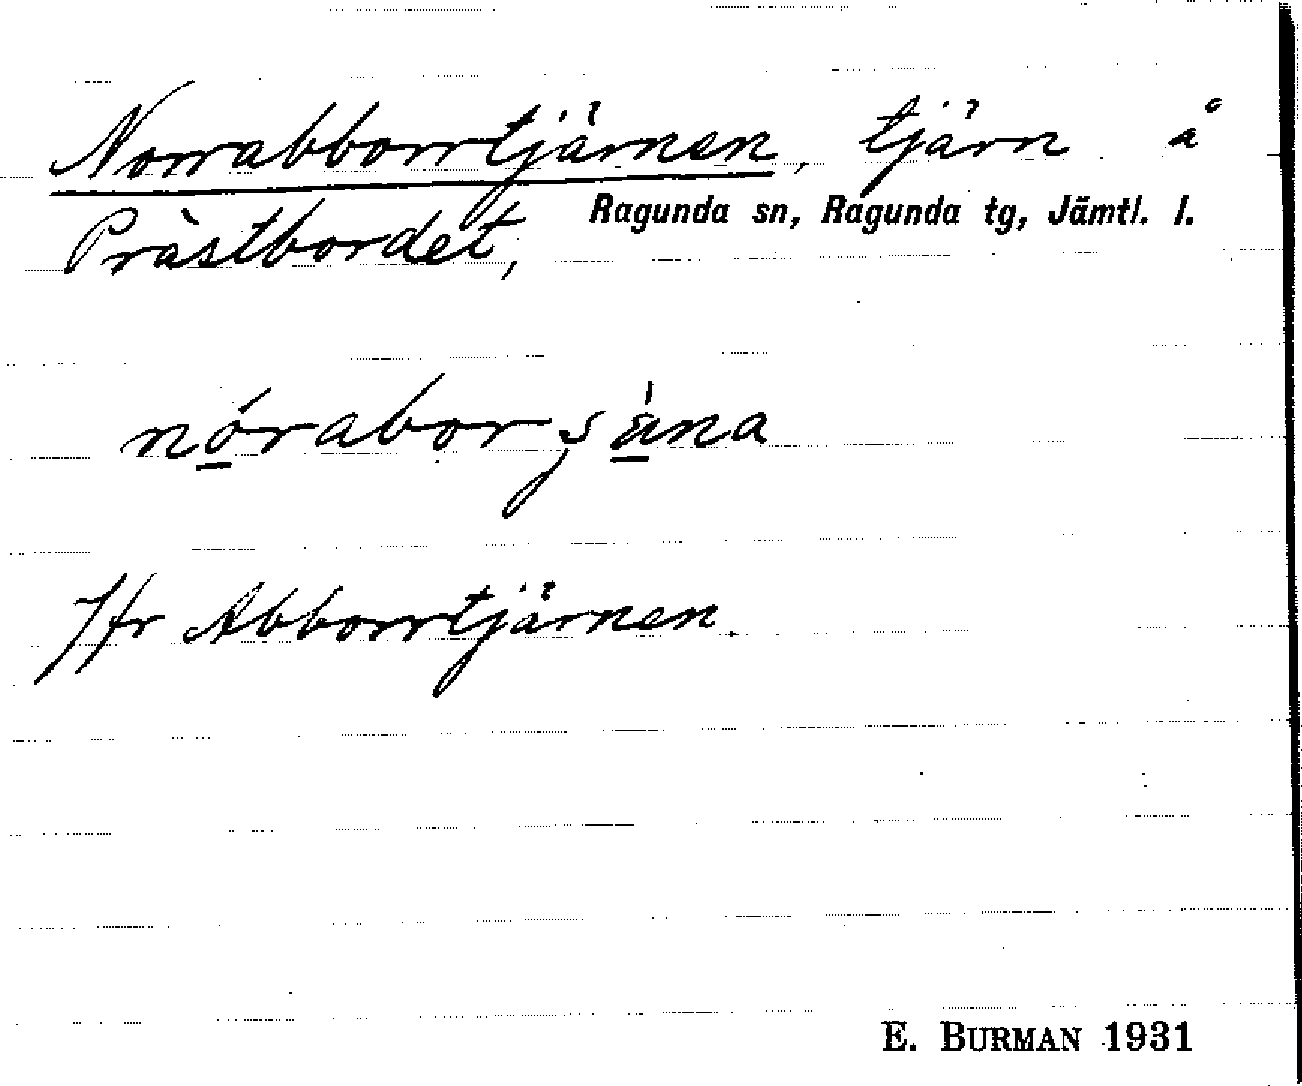 Norrabborrtjärnen, tjärn å
Prästbordet, Ragunda sn, Ragunda tg, Jämtl. l.
Jfr Abborrtjärnen.
E. BURMAN 1931